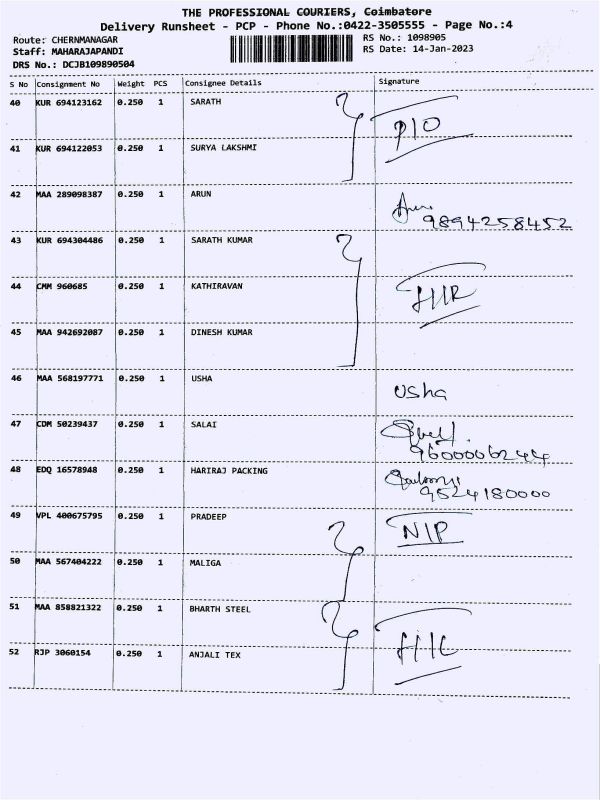 THE PROFESSIONAL COURIERS, Coimbatore
Delivery Runsheet - PCP - Phone No.:0422-3505555 - Page No.:4
Route: CHERNMANAGAR
RS No.: 1098905
Staff: MAHARAJAPANDI
RS Date: 14-Jan-2023
DRS No.: DCJB109890504
S No Consignment No Weight PCS Consignee Details Signature
40 KUR 694123162 0.250 1 SARATH
P10
41 KUR 694122053 0.250 1 SURYA LAKSHMI
42 MAA 289098387 0.250 1 ARUN
9894258452
43 KUR 694304486 0.250 1 SARATH KUMAR
44 CMM 960685 0.250 1 KATHIRAVAN
45 MAA 942692087 0.250 1 DINESH KUMAR
46 MAA 568197771 0.250 1 USHA
Usha
47 CDM 50239437 0.250 1 SALAI
9600006244
48 EDQ 16578948 0.250 1 HARIRAJ PACKING
9524180000
49 VPL 400675795 0.250 1 PRADEEP
NIP
50 MAA 567404222 0.250 1 MALIGA
51 MAA 858821322 0.250 1 BHARTH STEEL
52 RJP 3060154 0.250 1 ANJALI TEX